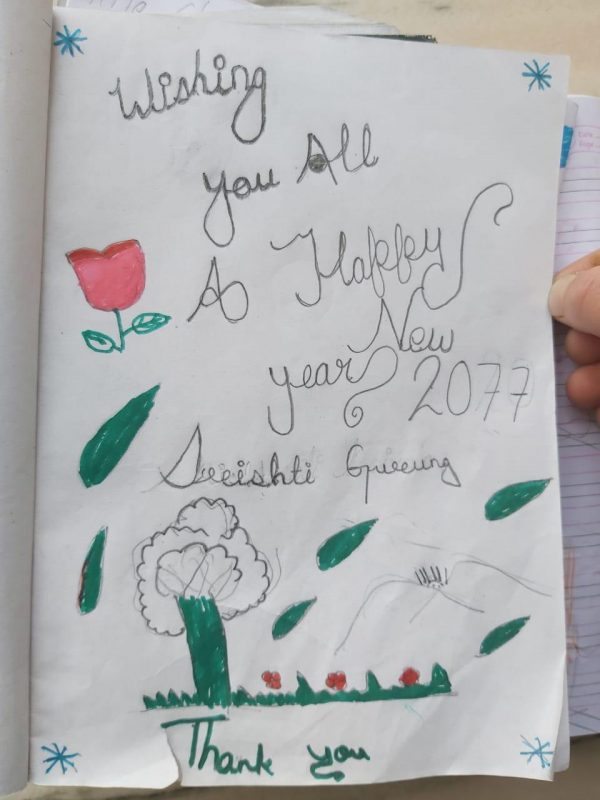 Wishing
you All
A Happy
New
year 2077
Sreishti Gurung
Thank you